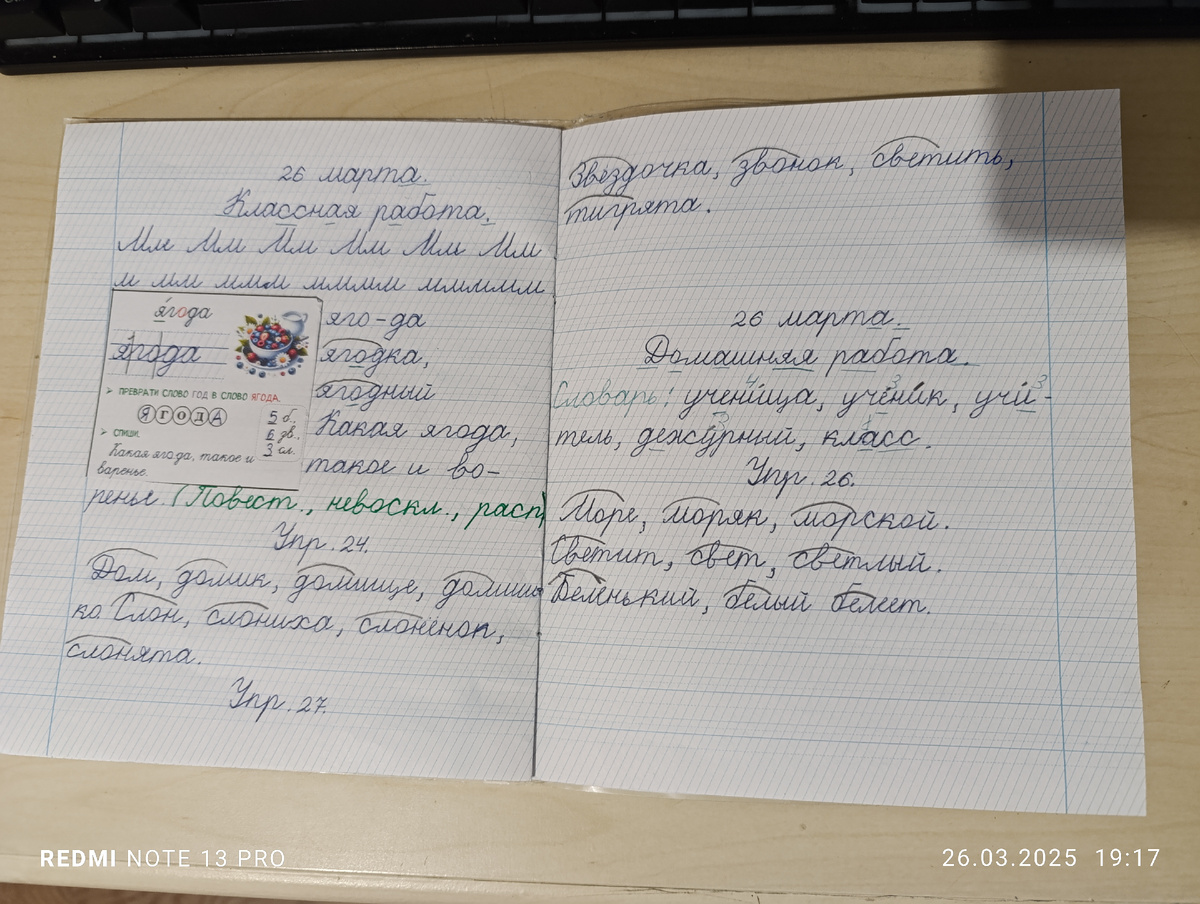 26 марта.
Классная работа.
Мм Мм Мм Мм Мм Мм
м мм ммм мммм ммммм
ягода
ягода
➤ ПРЕВРАТИ СЛОВО ГОД В СЛОВО ЯГОДА.
ЯГОДА
5 б.
6 зв.
3 сл.
➤ СПИШИ.
Какая ягода, такое и
варенье.
яго-да
ягодка,
ягодный
Какая ягода,
такое и ва-
ренье. (Повест., невоскл., расп)
Упр. 24.
Дом, домик, домище, домиш
ко. Слон, слониха, слонёнок,
слонята.
Упр. 27.
Звездочка, звонок, светить,
тигрята.
26 марта.
Домашняя работа.
Словарь: ученица, ученик, учи-
4 3 3
тель, дежурный, класс.
3 1
Упр. 26.
Море, моряк, морской.
Светит, свет, светлый.
Беленький, белый белеет.
REDMI NOTE 13 PRO
26.03.2025 19:17